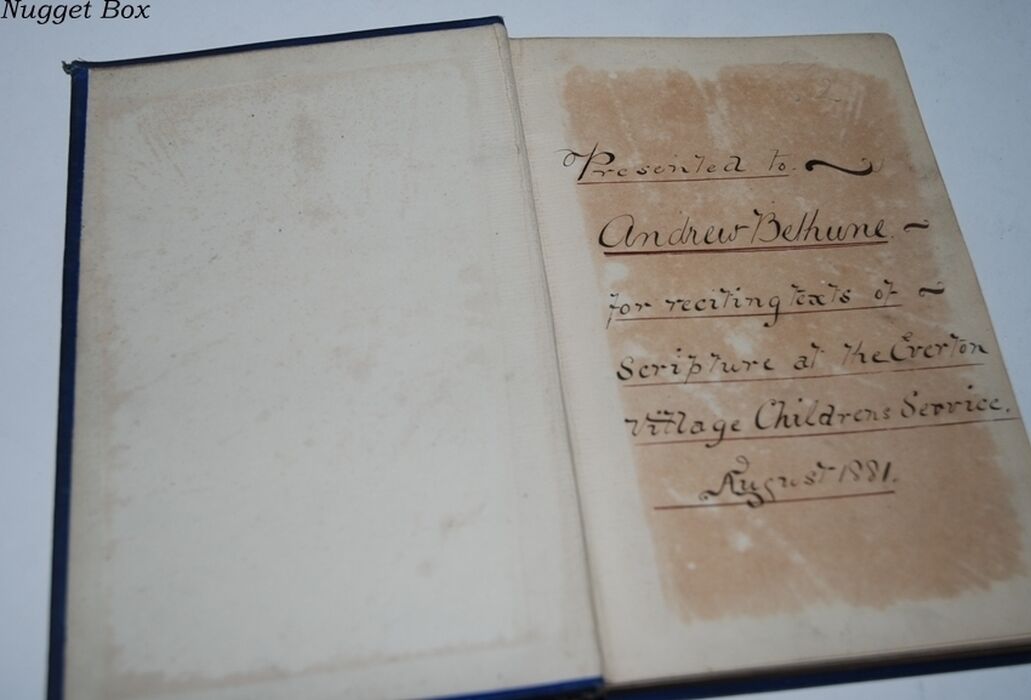 Nugget Box
Presented to.
Andrew Bethune.
for reciting texts of
Scripture at the Everton
Village Childrens Service.
August 1881.